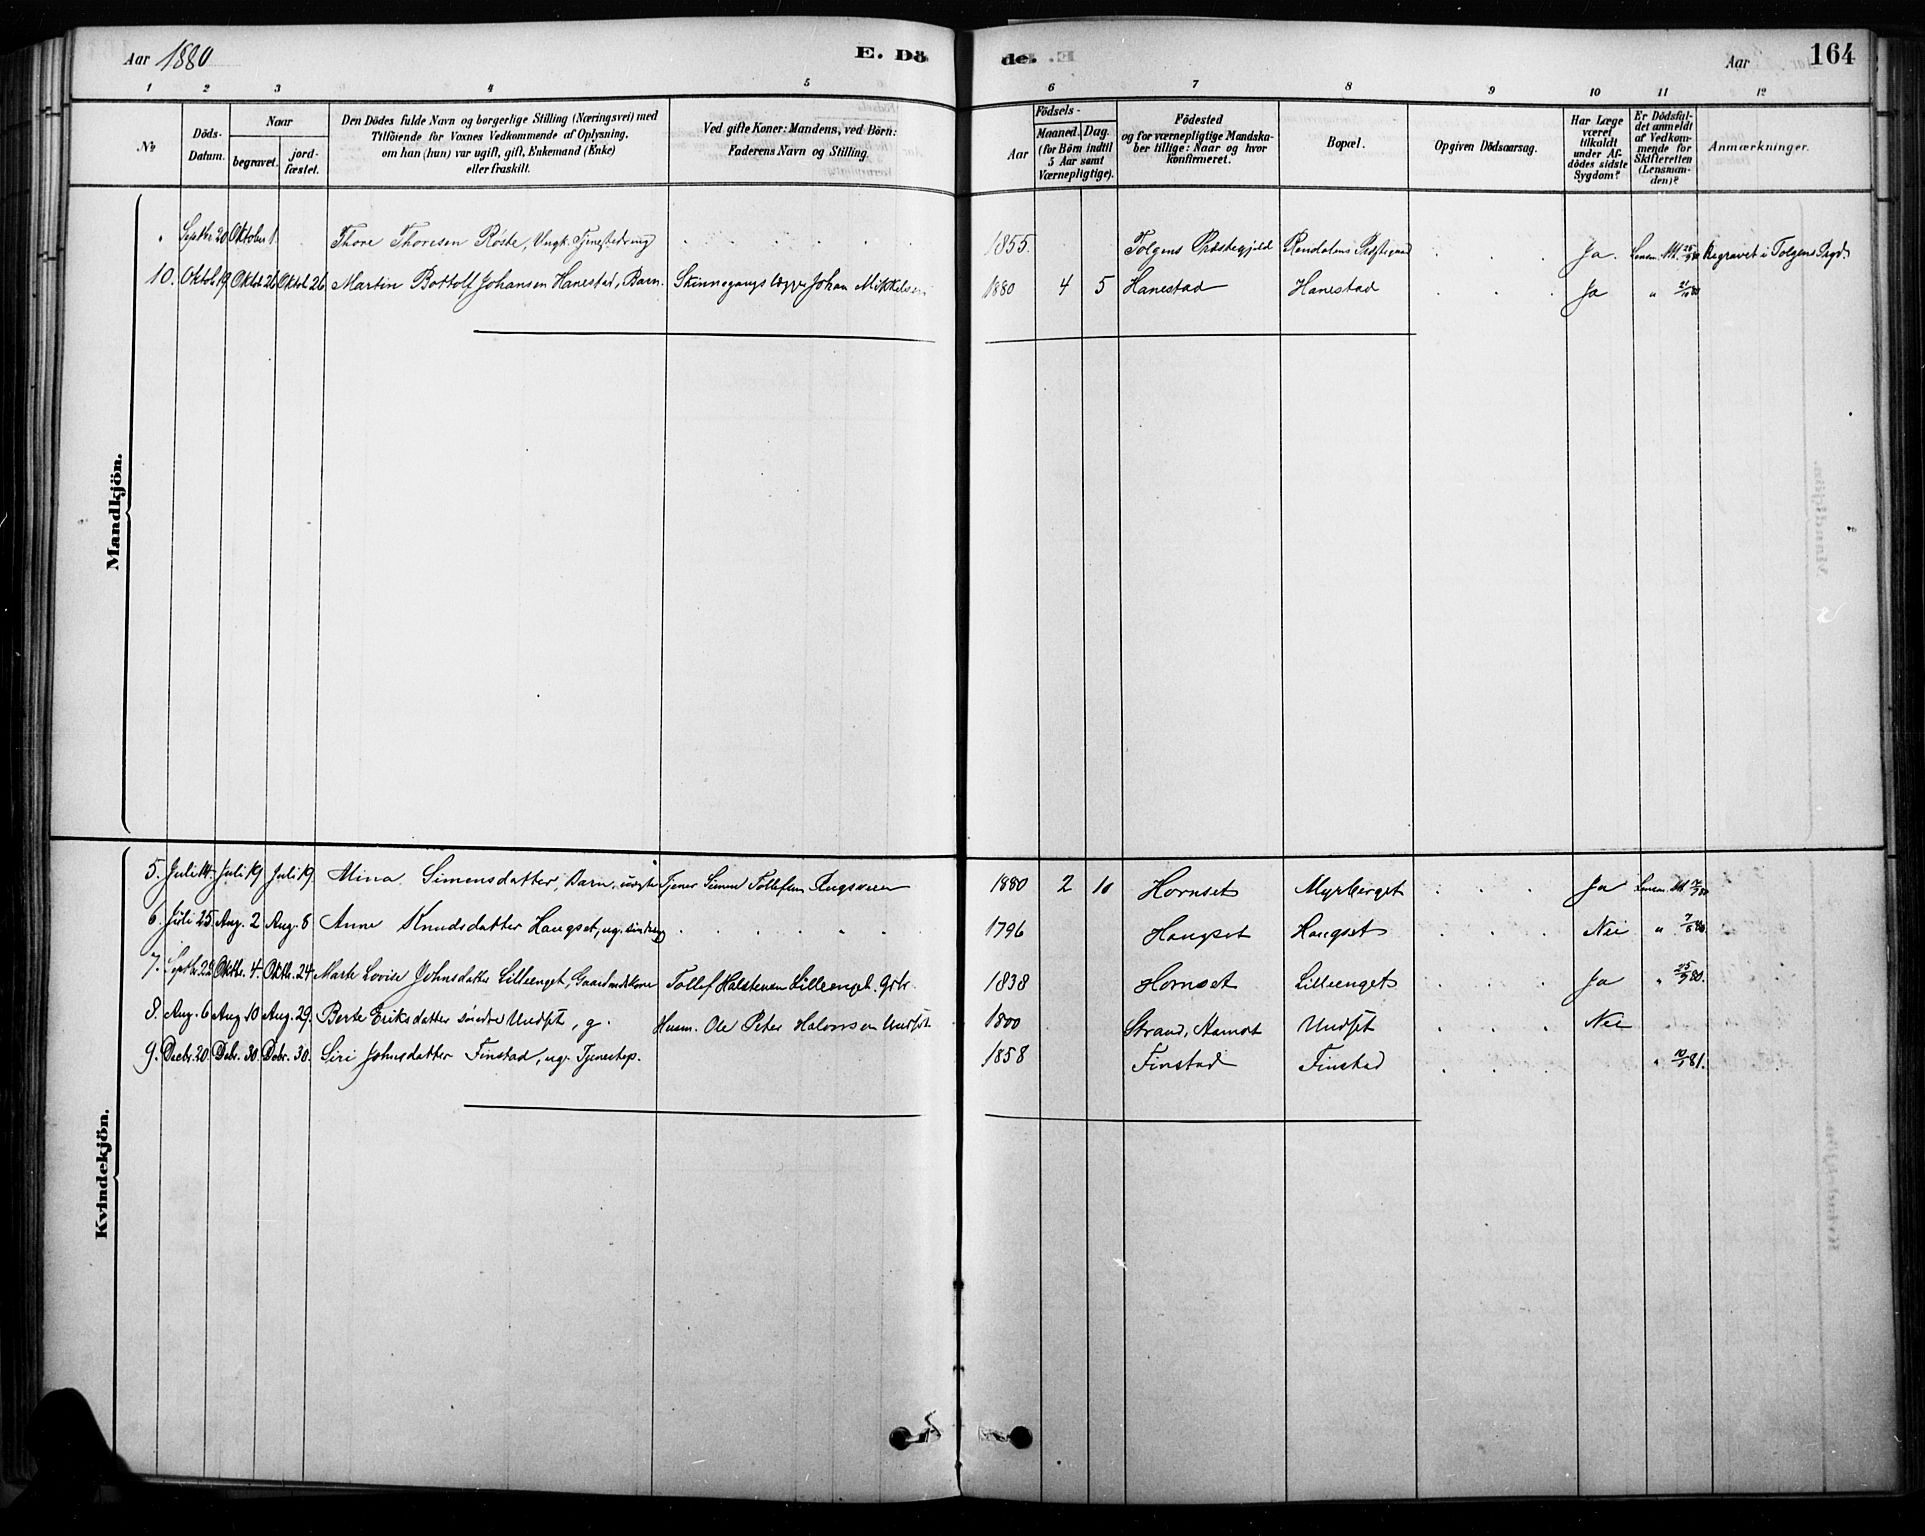 Aar 1880 E. Dö de. Aar 164
1 2 3 4 5 6 7 8 9 10 11 12
No
Döds-Datum.
Naar
begravet.
jord-fæstet.
Den Dödes fulde Navn og borgerlige Stilling (Næringsvei) med
Tilföiende for Voxnes Vedkommende af Oplysning,
om han (hun) var ugift, gift, Enkemand (Enke)
eller fraskilt.
Ved gifte Koner: Mandens, ved Börn:
Faderens Navn og Stilling.
Födsels-
Aar
Maaned. Dag.
(for Börn indtil
5 Aar samt
Værnepligtige).
Födested
og for værnepligtige Mandska-
ber tillige: Naar og hvor
Konfirmeret.
Bopæl.
Opgiven Dödsaarsag.
Har Læge
været
tilkaldt
under Af-
dödes sidste
Sygdom?
Er Dödsfal-
det anmeldt
af Vedkom-
mende for
Skifteretten
(Lensman-
den)?
Anmærkninger.
Mandkjön.
Septbr 20 Oktober 1. Thore Thoresen Röste, Ungk. Tjenestedreng 1855. Tolgens Præstegjeld Rendalens Ja. Lensm. begravet i Tolgen
10. Oktob. 19 Oktob. 26 Oktob. 26 Martin Bottolf Johansen Hanestad, Barn. Skinnegangslægger Johan Mikkelsen 1880 4 5 Hanestad Hanestad Ja " 21/10 80
Kvindekjön.
5. Juli 14. Juli 19 Juli 19. Mina Simensdatter, Barn, uægte Tjener Simen Tollefsen 1880 2 10 Hornset Myrberget Ja Lensm.
6. Juli 25 Aug. 2 Aug. 8 Anne Knudsdatter Haugset, ug. 1796 Haugset Haugset Nei "
7. Septbr. 22 Oktbr. 4 Oktbr. 24 Marte Lovise Johnsdatter Lilleenget, Gaardmdskone Tollef Halstensen Lilleenget. Gbr. 1838 Hornset Lilleenget Ja " 25/9 80.
8. Aug. 6 Aug 10 Aug. 29. Berte Eriksdatter söndre Undset, g. Husm. Ole Peter Halvorsen Undset 1800 Strand, Aamot Undset Nei
9. Decbr. 20. Debr. 30. Debr. 30. Siri Johnsdatter Finstad, ug. Tjenestep. 1858 Finstad Finstad " 81.